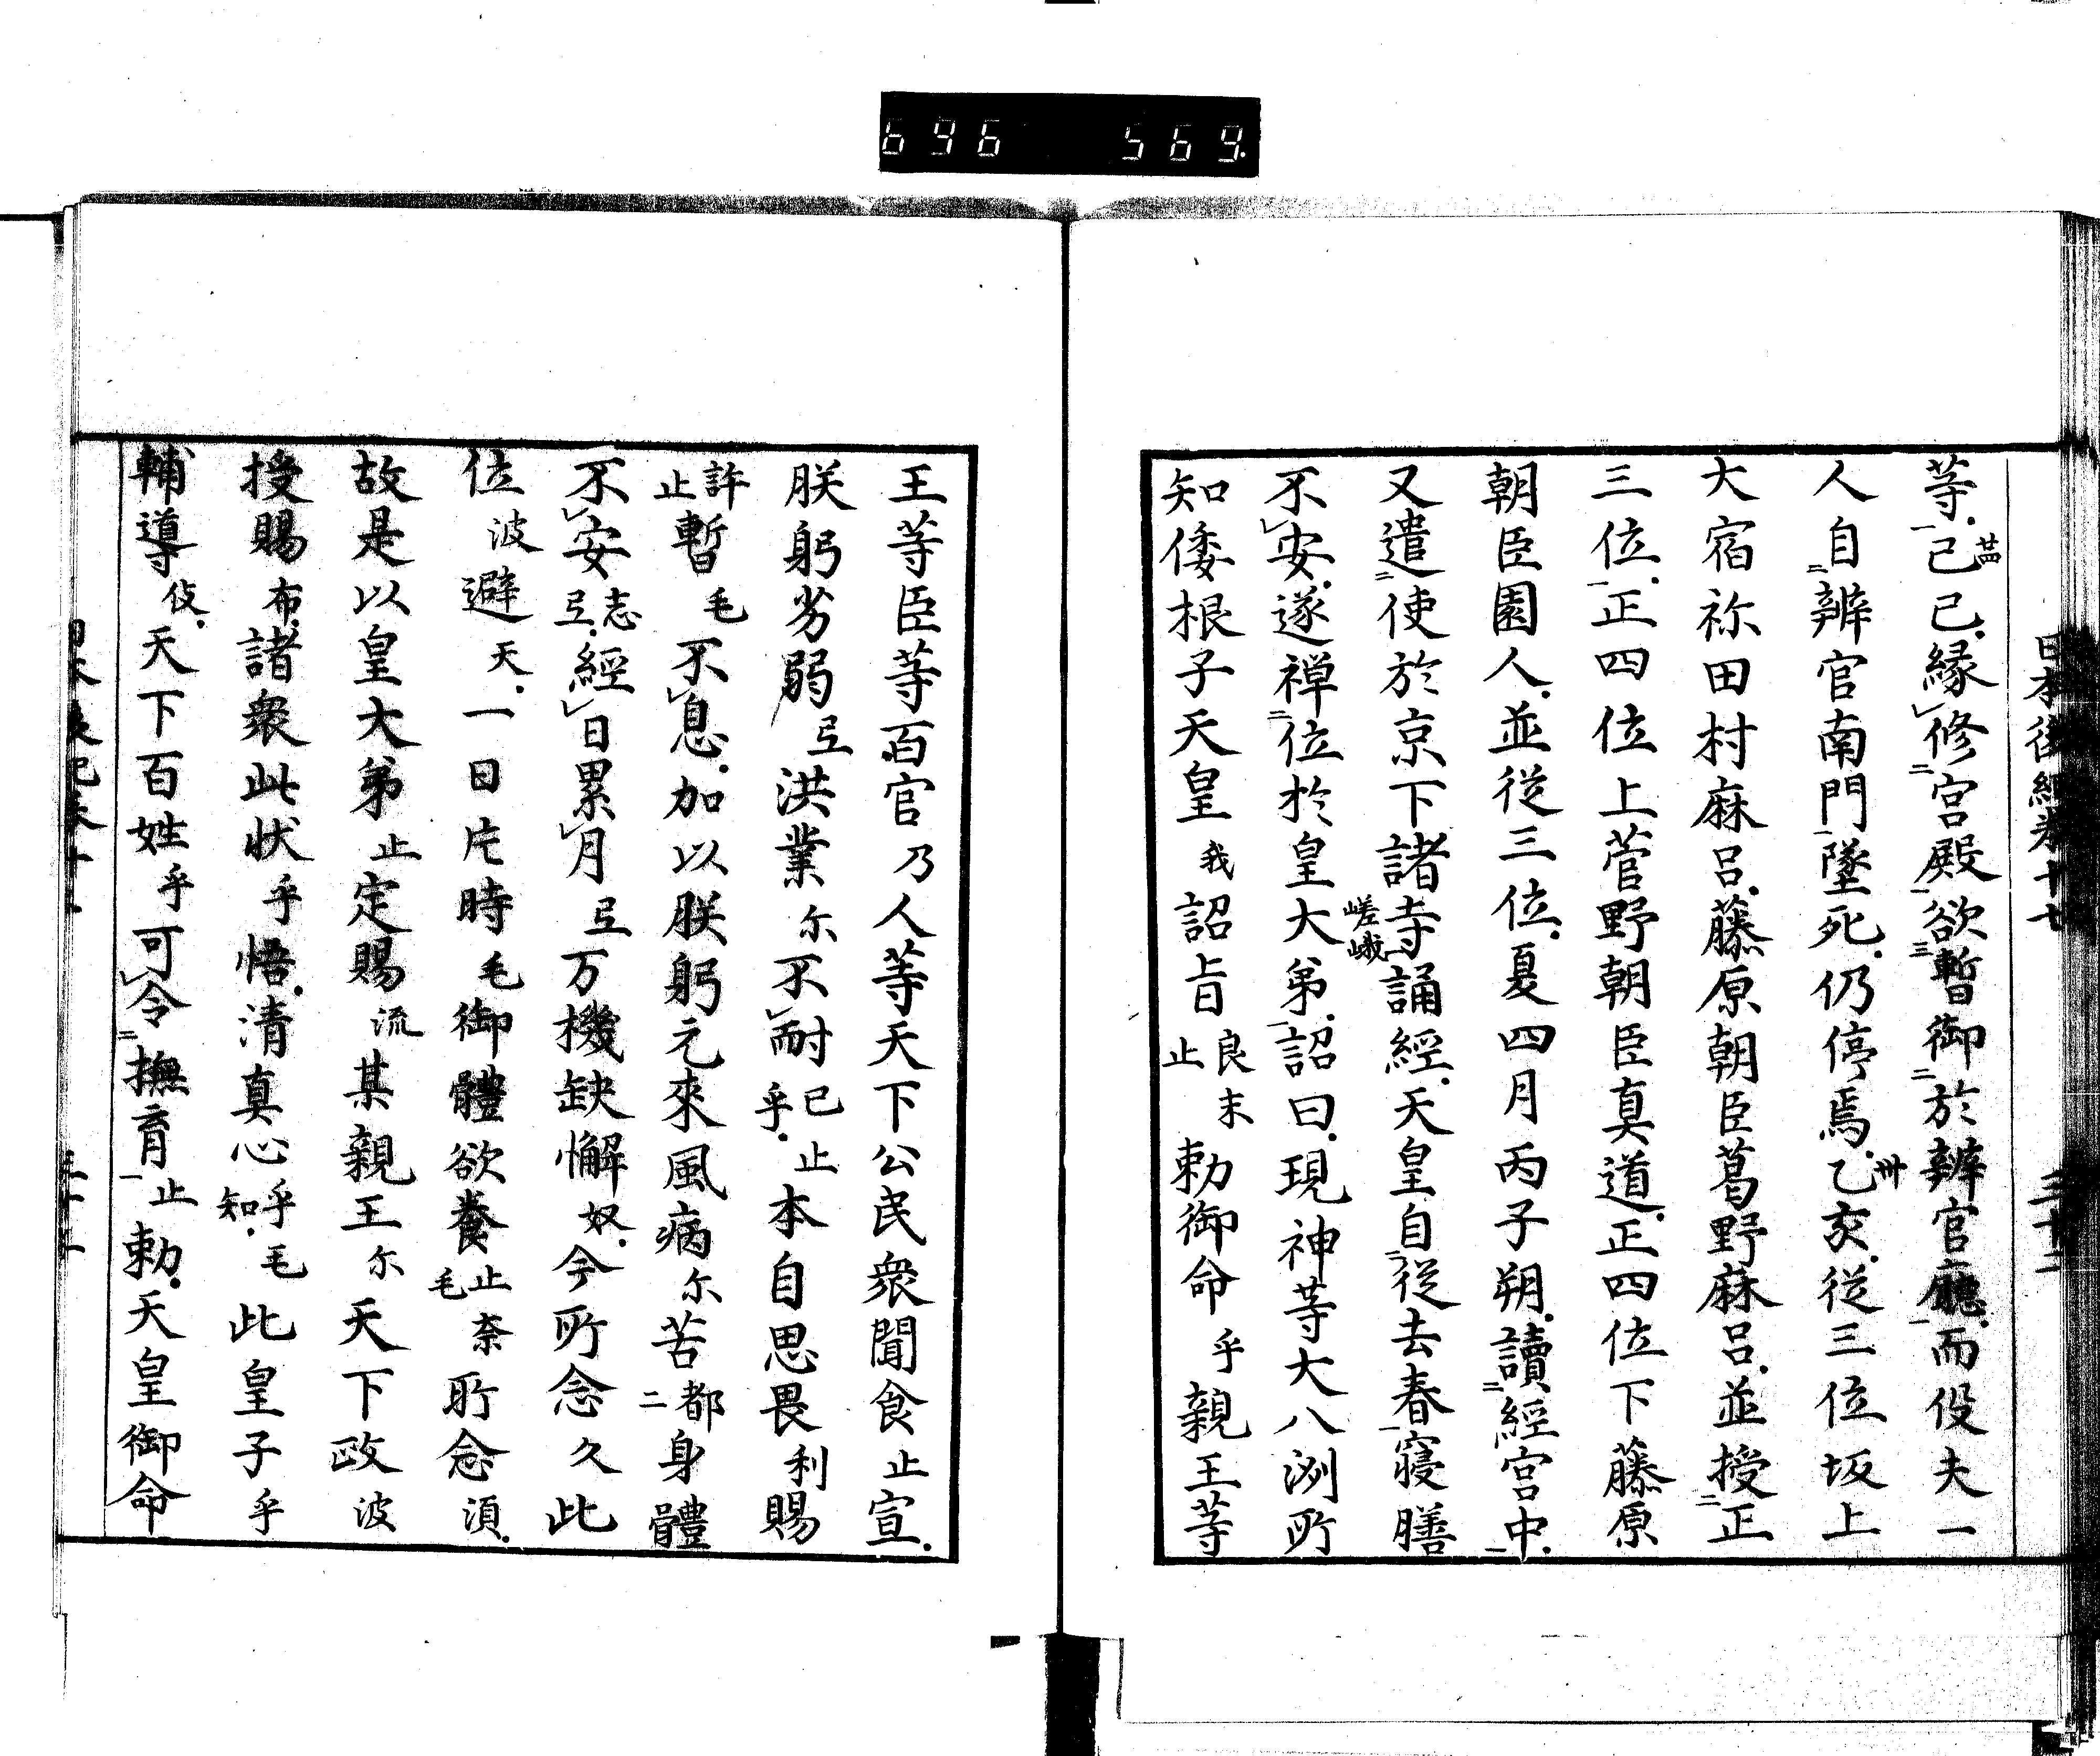 696 569
日本後紀卷十七 三十二
等己巳縁修宮殿欲暫御於辨官廳而役夫一
廿四
人自辨官南門墜死仍停焉乙亥從三位坂上
卅
大宿祢田村麻呂藤原朝臣葛野麻呂並授正
三位正四位上菅野朝臣真道正四位下藤原
朝臣園人並從三位夏四月丙子朔讀經宮中
又遣使於京下諸寺誦經天皇自從去春寢膳
不安遂禅位於皇大弟詔曰現神等大八洲所
嵯峨
知倭根子天皇我詔旨良末止勅御命乎親王等
王等臣等百官乃人等天下公民衆聞食止宣
朕躬劣弱弖洪業尓不耐已止乎本自思畏利賜
許止暫毛不息加以朕躬元來風病尓苦都二身體
不安志弖經日累月弖万機缺懈奴今所念久此
位波避天一日片時毛御體欲養止奈毛所念湏
故是以皇大弟止定賜流某親王尓天下政波
授賜布諸衆此状乎悟清真心乎毛知此皇子乎
輔導伎天下百姓乎可令撫育止勅天皇御命